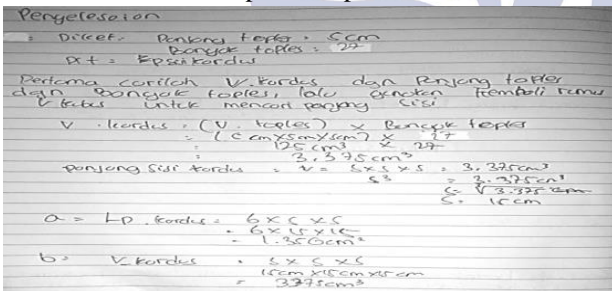 Penyelesaian
: Diket. Panjang toples = 5cm
Banyak toples = 27
Dit = Lp sisi kardus
Pertama carilah V. kardus dgn Panjang toples
dgn banyak toples, lalu gunakan kembali rumus
V kubus untuk mencari panjang sisi
V . kardus = (V. toples) x Banyak toples
= (5 cm x 5cm x 5cm) x 27
= 125 cm³ x 27
= 3.375cm³
Panjang sisi kardus = V = s x s x s = 3.375cm³
s³ = 3.375cm³
s = ∛3.375 cm
s = 15cm
a = Lp. kardus = 6 x s x s
= 6 x 15 x 15
= 1.350cm²
b = V. kardus = s x s x s
15cm x 15 cm x 15 cm
= 3375cm³